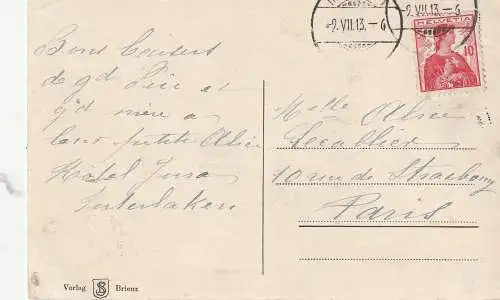 Bons baisers
de gd Père et
gd mère a
leur petite Alice
Hôtel Jura
Interlaken
-9.VII.13.-6
-9.VII.13.-6
HELVETIA
10
Melle Alice
10 rue de Strasbourg
Paris
Verlag SB Brienz